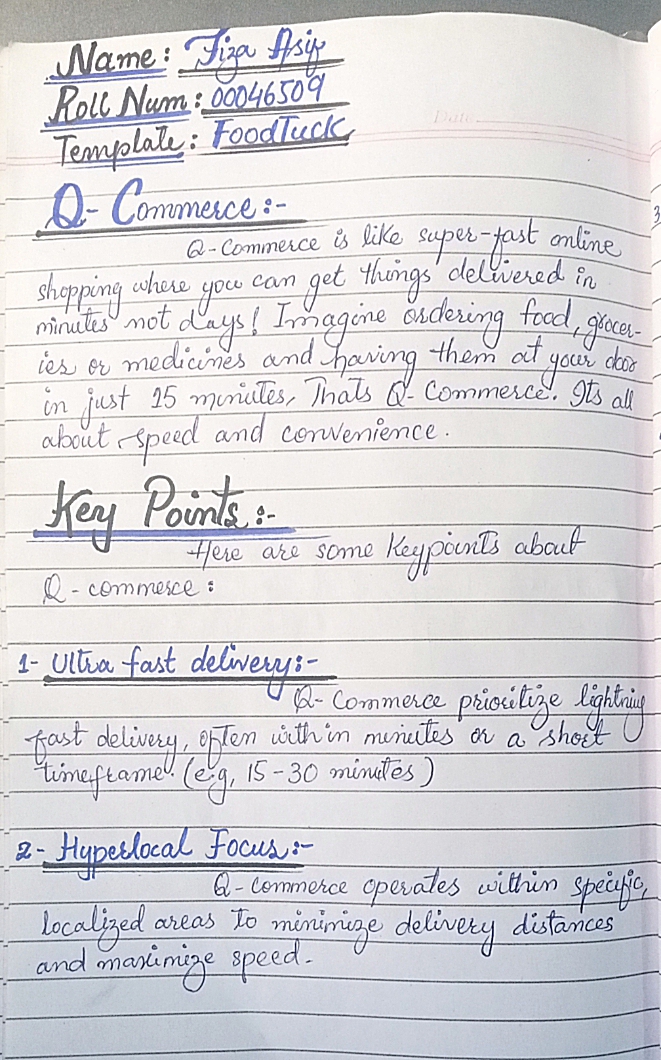 Name: Fiza Asif
Roll Num: 00046509
Template: FoodTuck
Date
Q- Commerce:-
Q-Commerce is like super-fast online
shopping where you can get things delivered in
minutes not days! Imagine ordering food, grocer-
ies or medicines and having them at your door
in just 15 minutes, Thats Q- Commerce. Its all
about speed and convenience.
Key Points:-
Here are some Keypoints about
Q - commerce :
1- Ultra fast delivery:-
Q- Commerce prioritize lightning
fast delivery, often within minutes or a short
timeframe. (e.g, 15-30 minutes)
2- Hyperlocal Focus:-
Q- Commerce operates within specific,
localized areas to minimize delivery distances
and maximize speed.
3